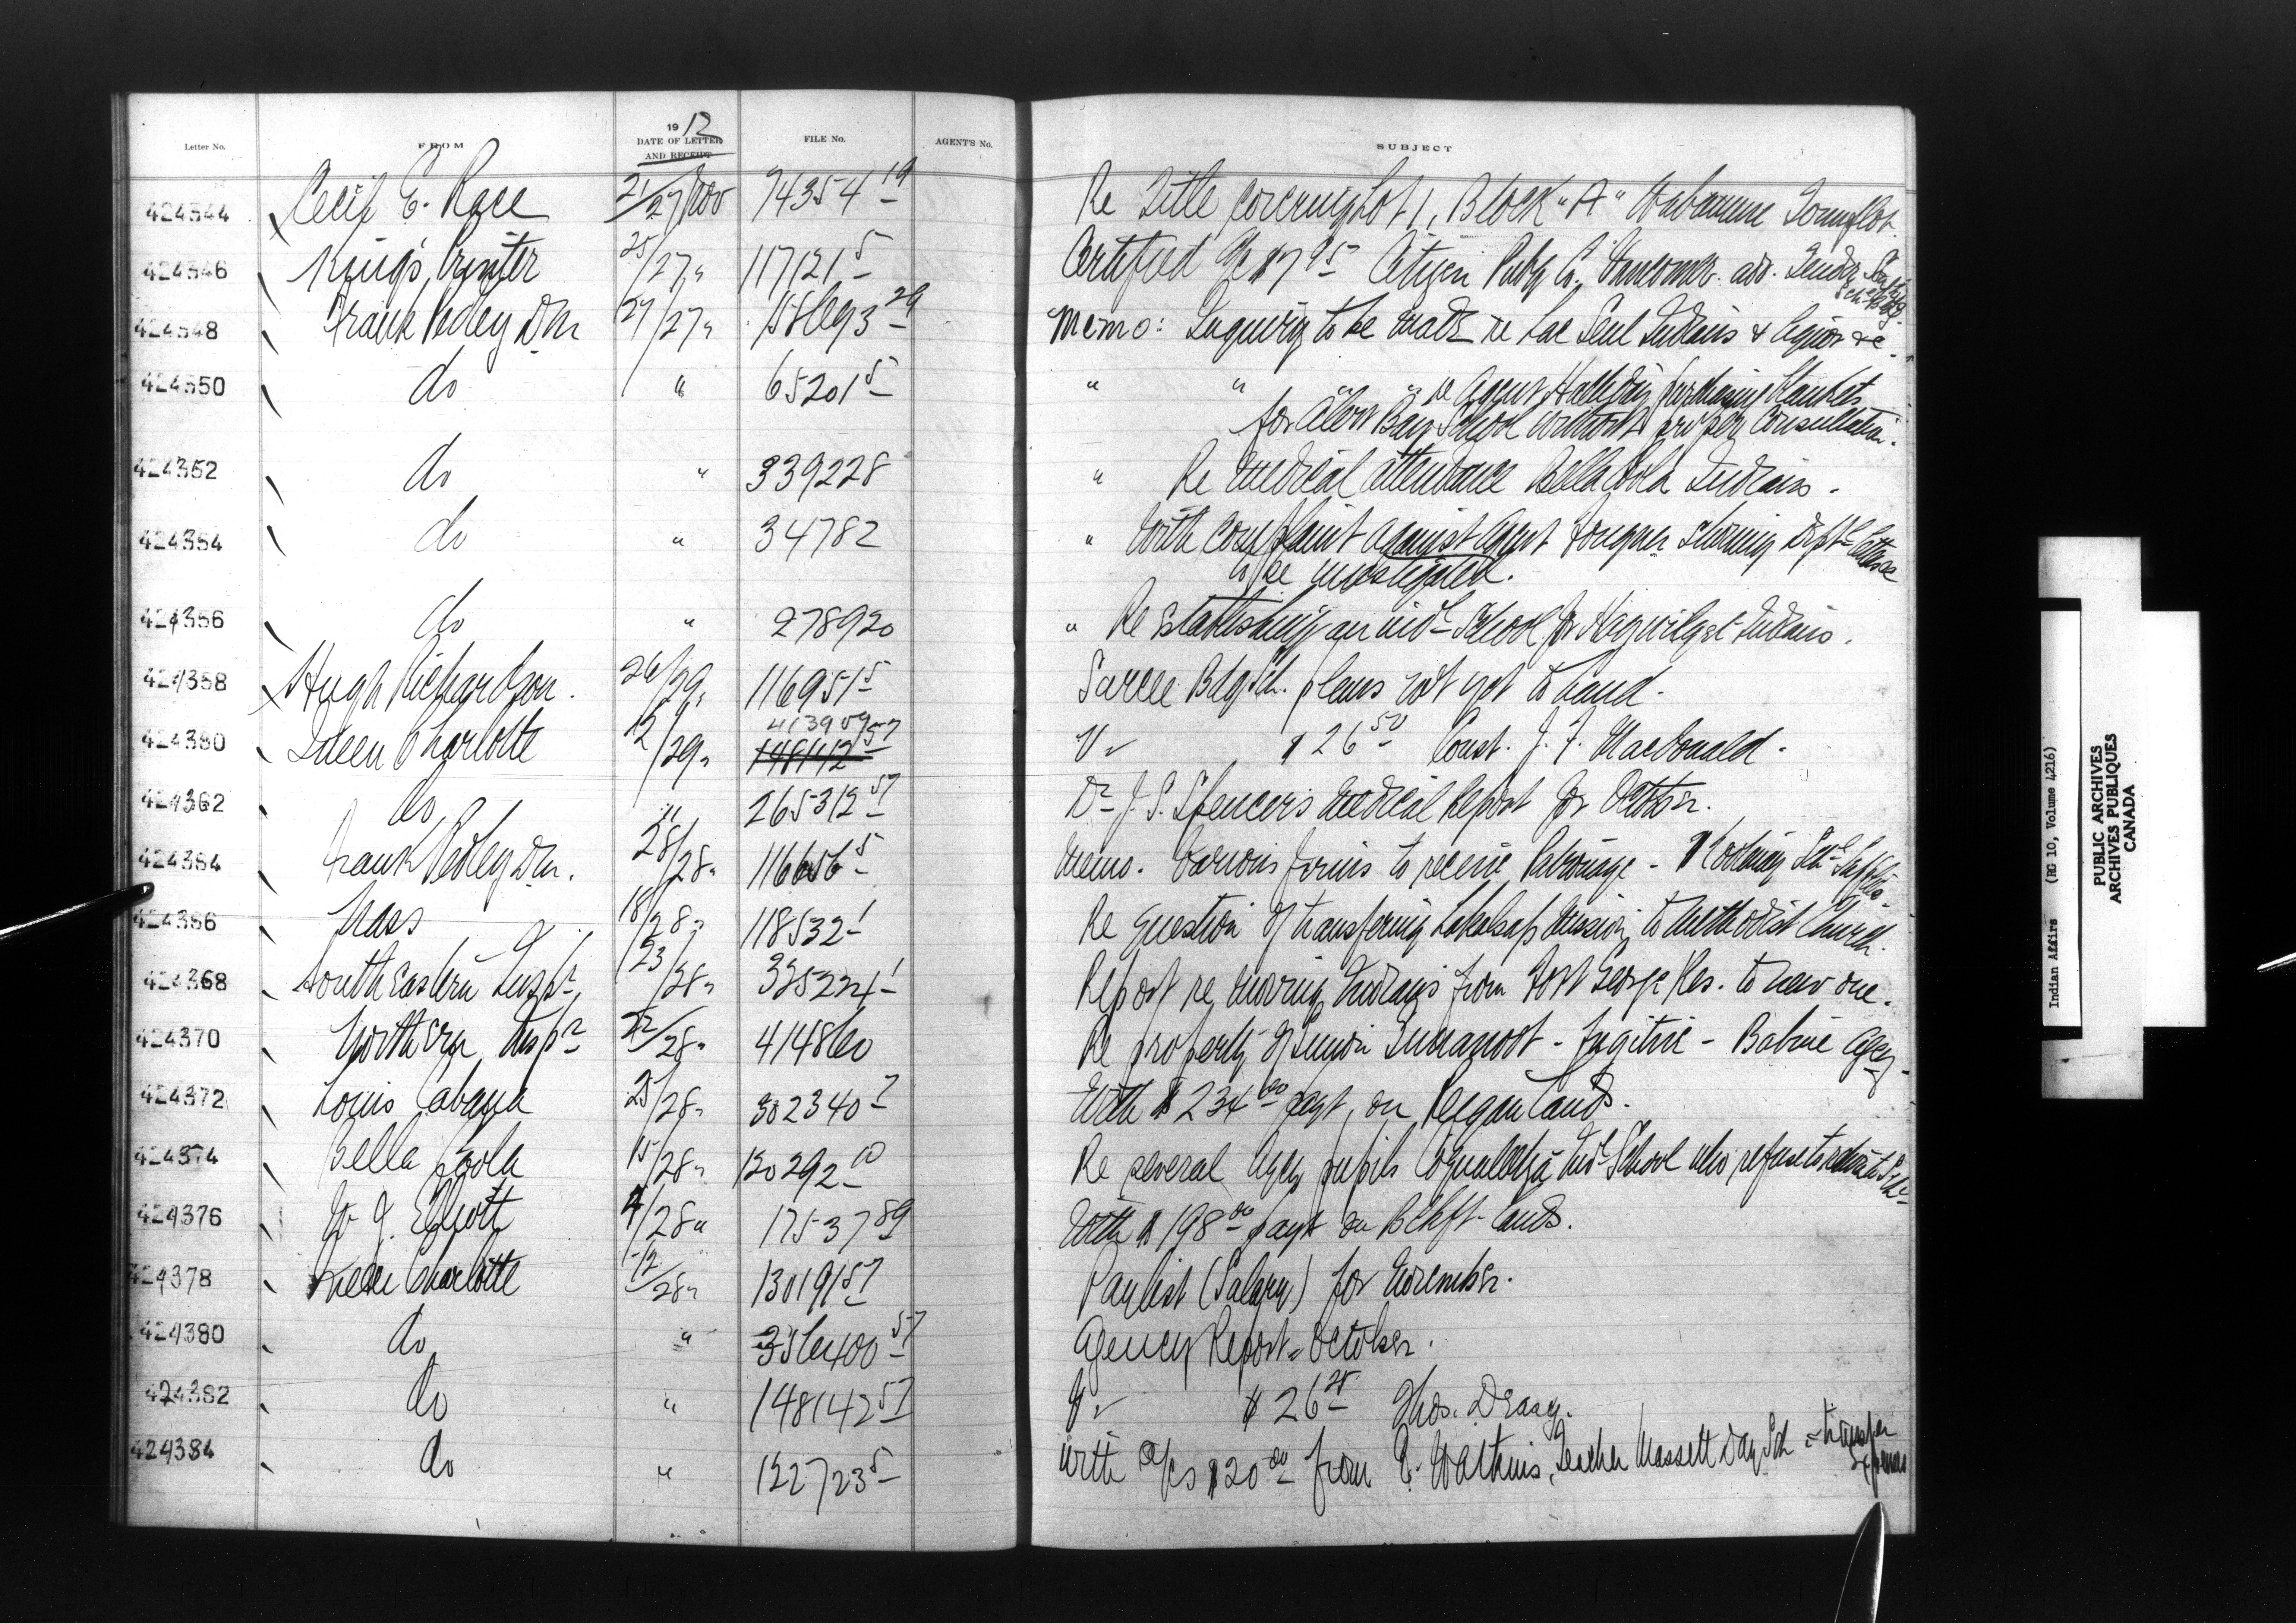 1912
Letter No. FROM DATE OF LETTER AND RECEIPT FILE No. AGENT'S No. SUBJECT
424344 Cecil E. Race 21/27 Nov 74354 19 Re Title covering Lot 1, Block "A" Wabamun Townplot.
424346 King's Printer 25/27 " 117121 5 Certified a/c $7 95 Citizen Pubg Co. Vancouver adv. Tender
424348 Frank Pedley DM 27/27 " 29 Memo: Inquiry to be made re Lac Seul Indians & liquor &c.
424350 do " 65201 5 " " " re Agent Halliday purchasing blankets
for Alert Bay School without proper consultation.
424352 do " 339228 " Re medical attendance Bella Coola Indians.
424354 do " 34782 " With complaint against Agent Fougner showing Dept'l letters
to be investigated.
424356 do " 278920 " Re establishing an ind'l School for Hagwilget Indians.
424358 Hugh Richardson. 26/29 " 116951 5 Sarcee Bdg. Sch. plans not yet to hand.
424360 Queen Charlotte 12/29 " 413909 57 148142 57 Vr $26 50 Const. J. F. MacDonald.
424362 do " 265312 57 Dr J. S. Spencer's medical Report for October.
424364 Frank Pedley DM. 28/28 " 116656 5 Memo. Various firms to receive Patronage - Kootenay Sch'l Supplies.
424366 Nass 18/28 " 118532 1 Re question of transfering Lakalsap Mission to Methodist Church.
424368 South Eastern Insp'r 23/28 " 335224 1 Report re moving Indians from Fort George Res. to new one.
424370 Northern Insp'r 22/28 " 414860 Re property of Simon - fugitive - Babine Agcy.
424372 Louis Cabana 25/28 " 302340 7 With $234 00 payt. on Peigan lands.
424374 Bella Coola 15/28 " 130292 10 Re several Agcy pupils Coqualeetza Ind'l School who refuse to return to Sch'l
424376 W J. Elliott 4/28 " 17537 89 With $198 00 payt on Blkft. lands.
424378 Queen Charlotte 12/28 " 130191 57 Paylist (Salary) for November.
424380 do " 356400 57 Agency Report - October.
424382 do " 148142 57 Vr $26 25 Thos. Deasy.
424384 do " 122723 5 With a/cs $20 00 from Watkins, Teacher Massett Day Sch - transfer expenses
Indian Affairs (RG 10, Volume 4216)
PUBLIC ARCHIVES
ARCHIVES PUBLIQUES
CANADA